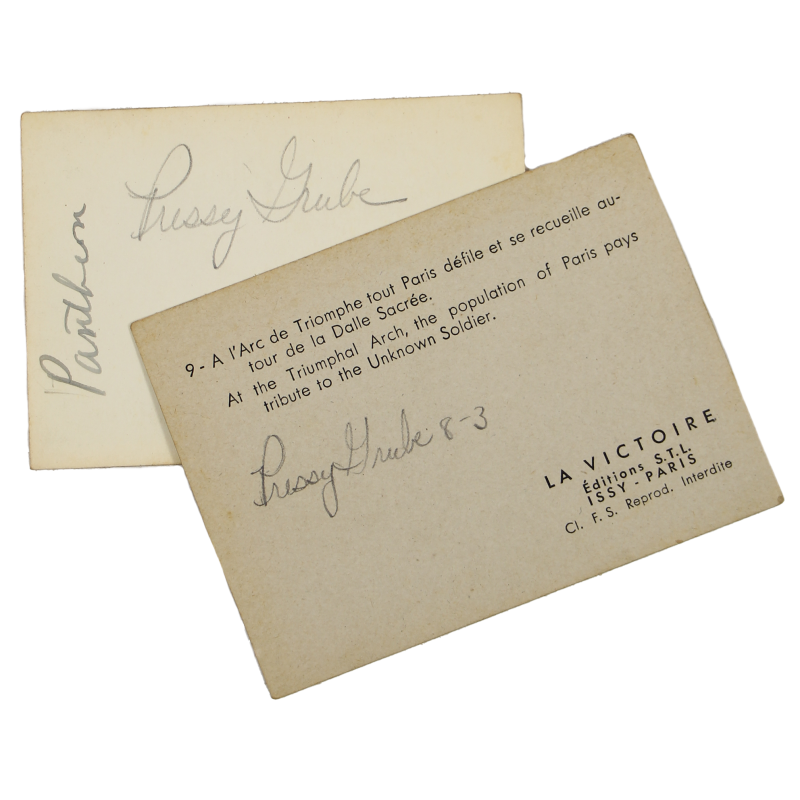 Pantheon
Pressy Grube
9 - A l'Arc de Triomphe tout Paris défile et se recueille au-
tour de la Dalle Sacrée.
At the Triumphal Arch, the population of Paris pays
tribute to the Unknown Soldier.
Pressy Grube 8-3
LA VICTOIRE
Éditions S.T.L.
ISSY - PARIS
Cl. F. S. Reprod. Interdite